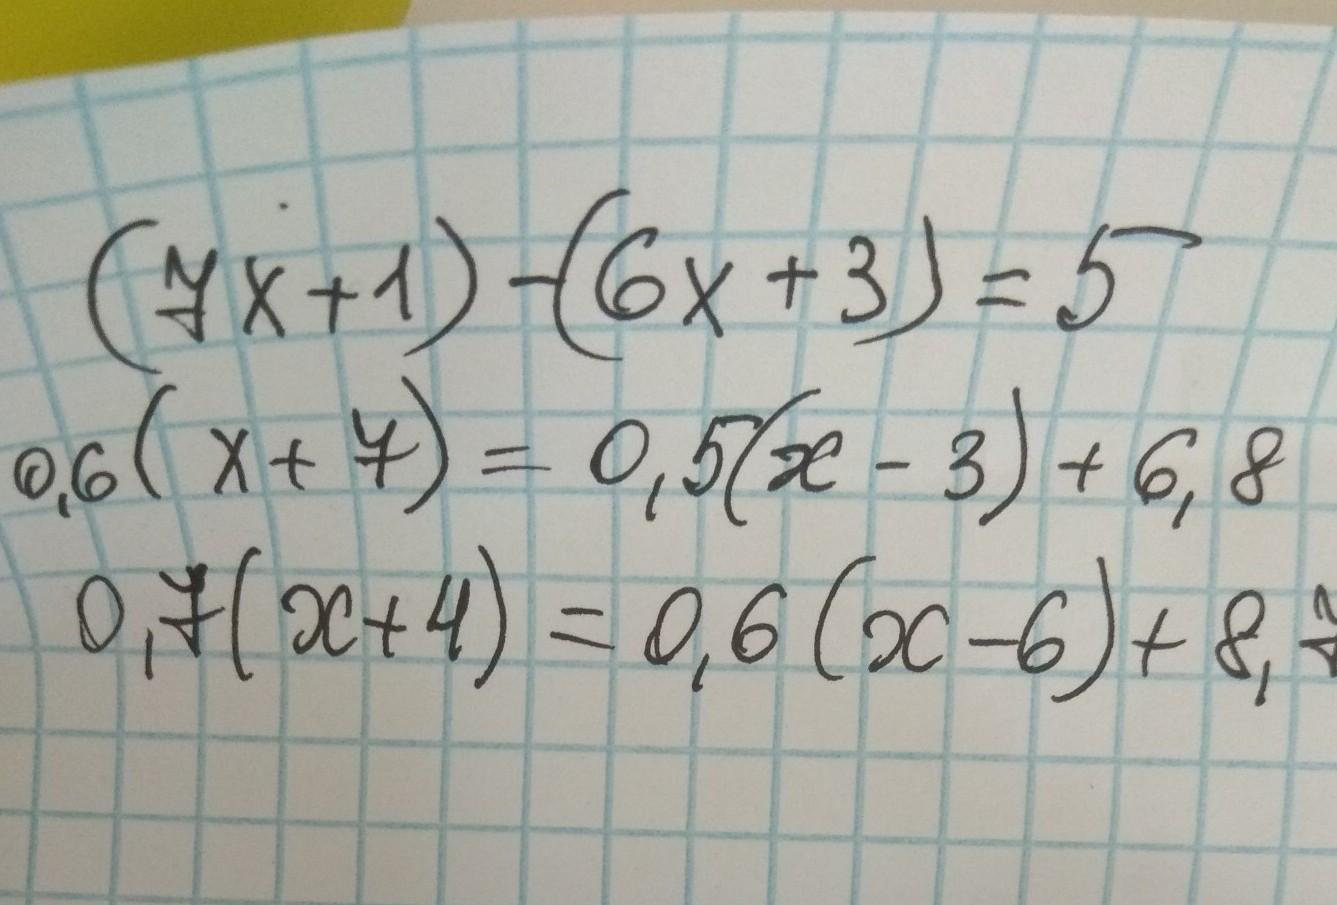 (7x+1)-(6x+3)=5
0,6(x+7)=0,5(x-3)+6,8
0,7(x+4)=0,6(x-6)+8,7